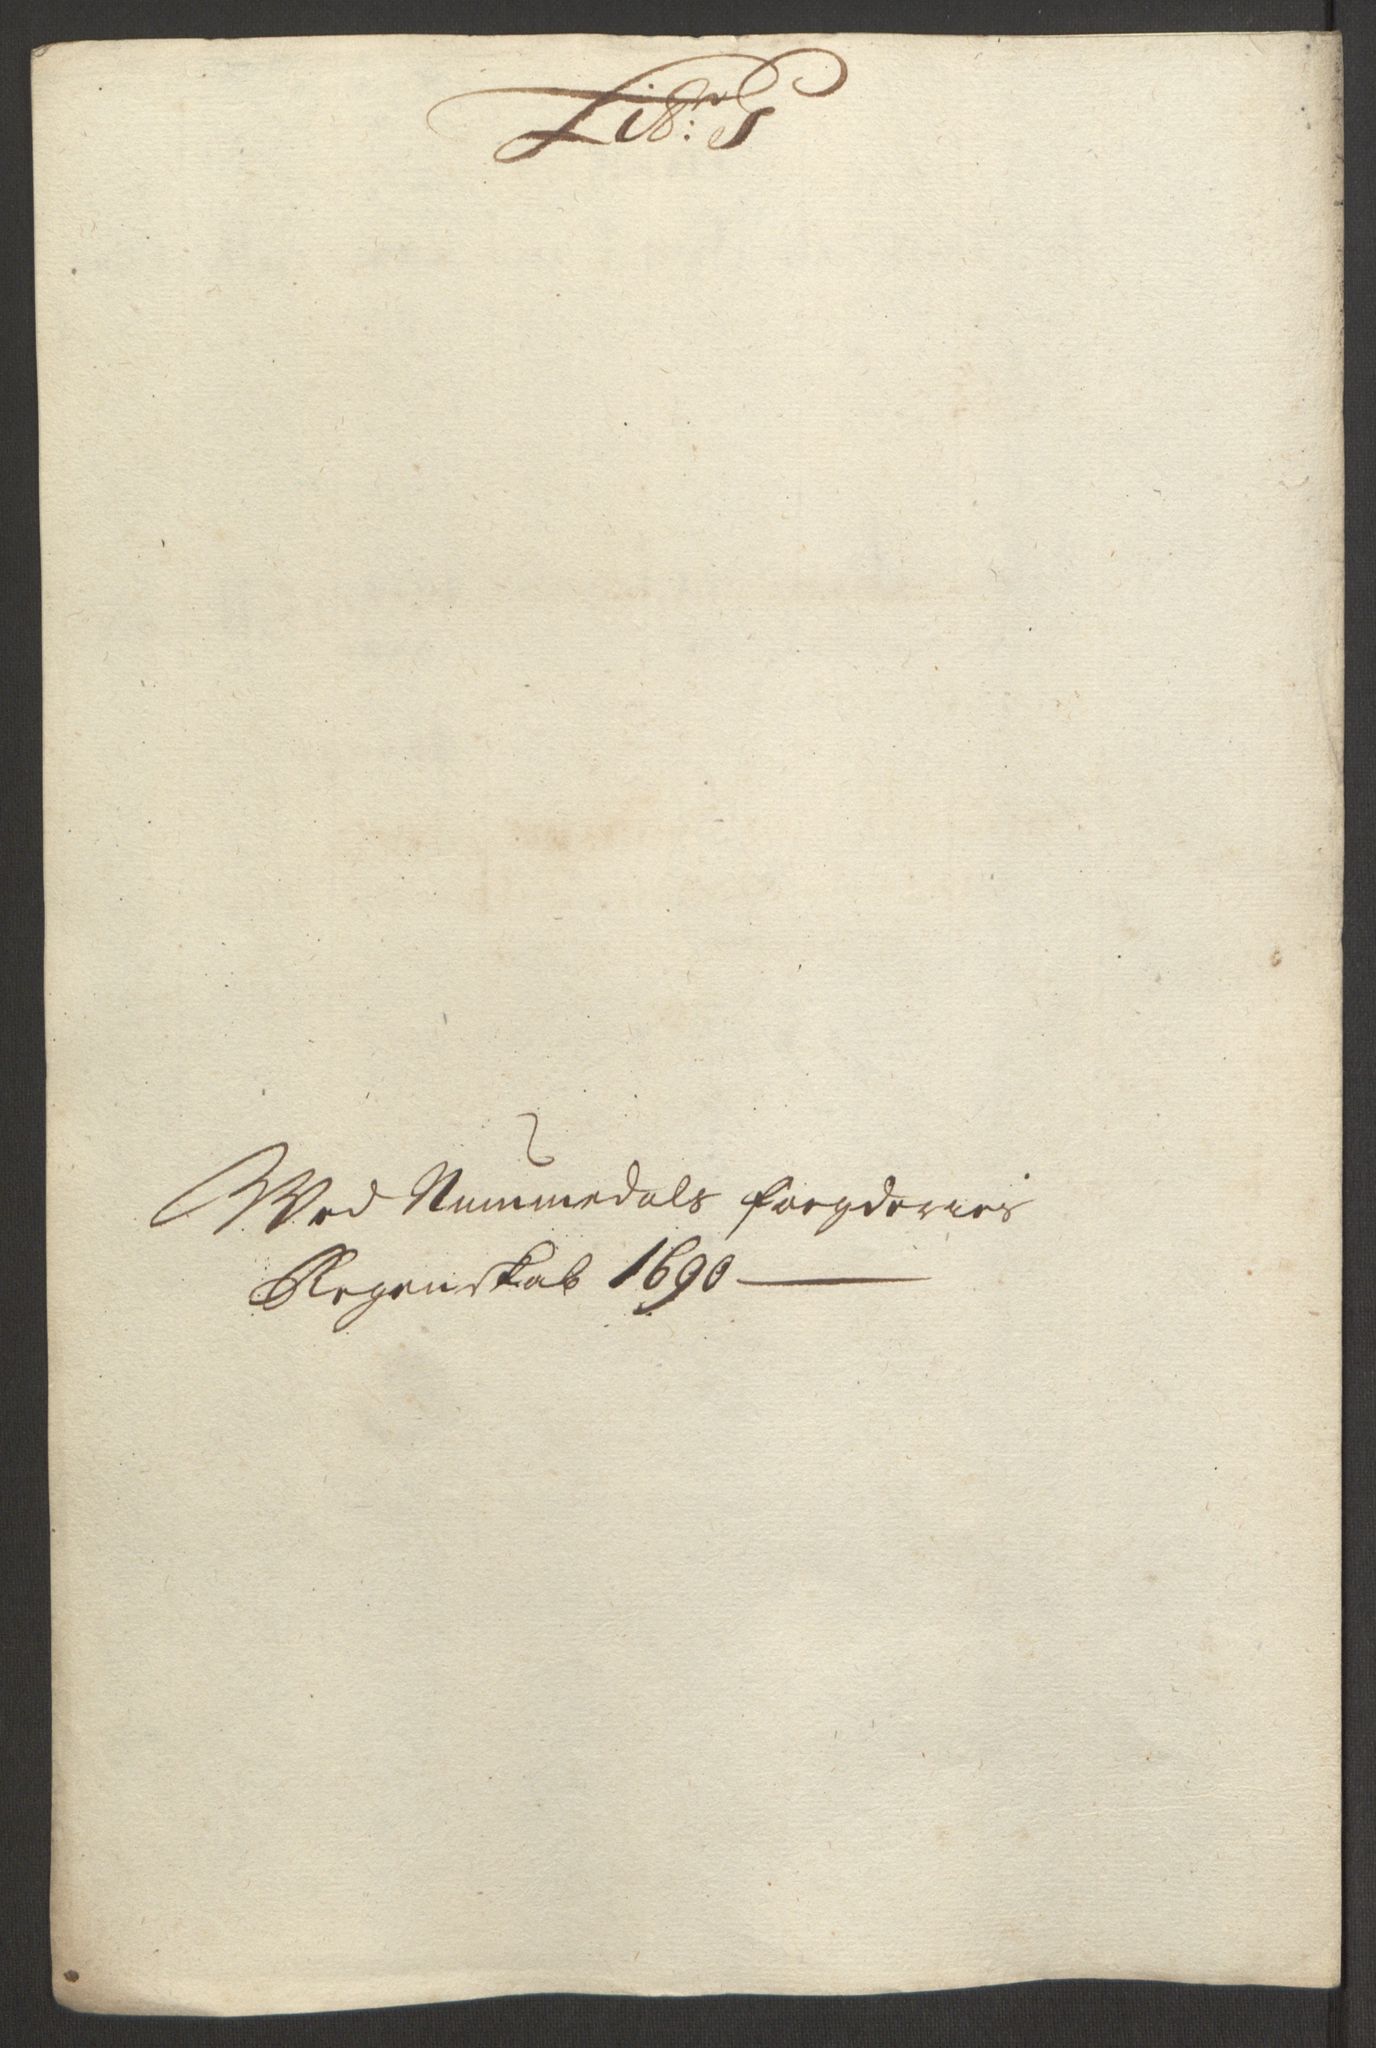 Litr: G
Wed Nummedals fougderies
Regenskab 1690